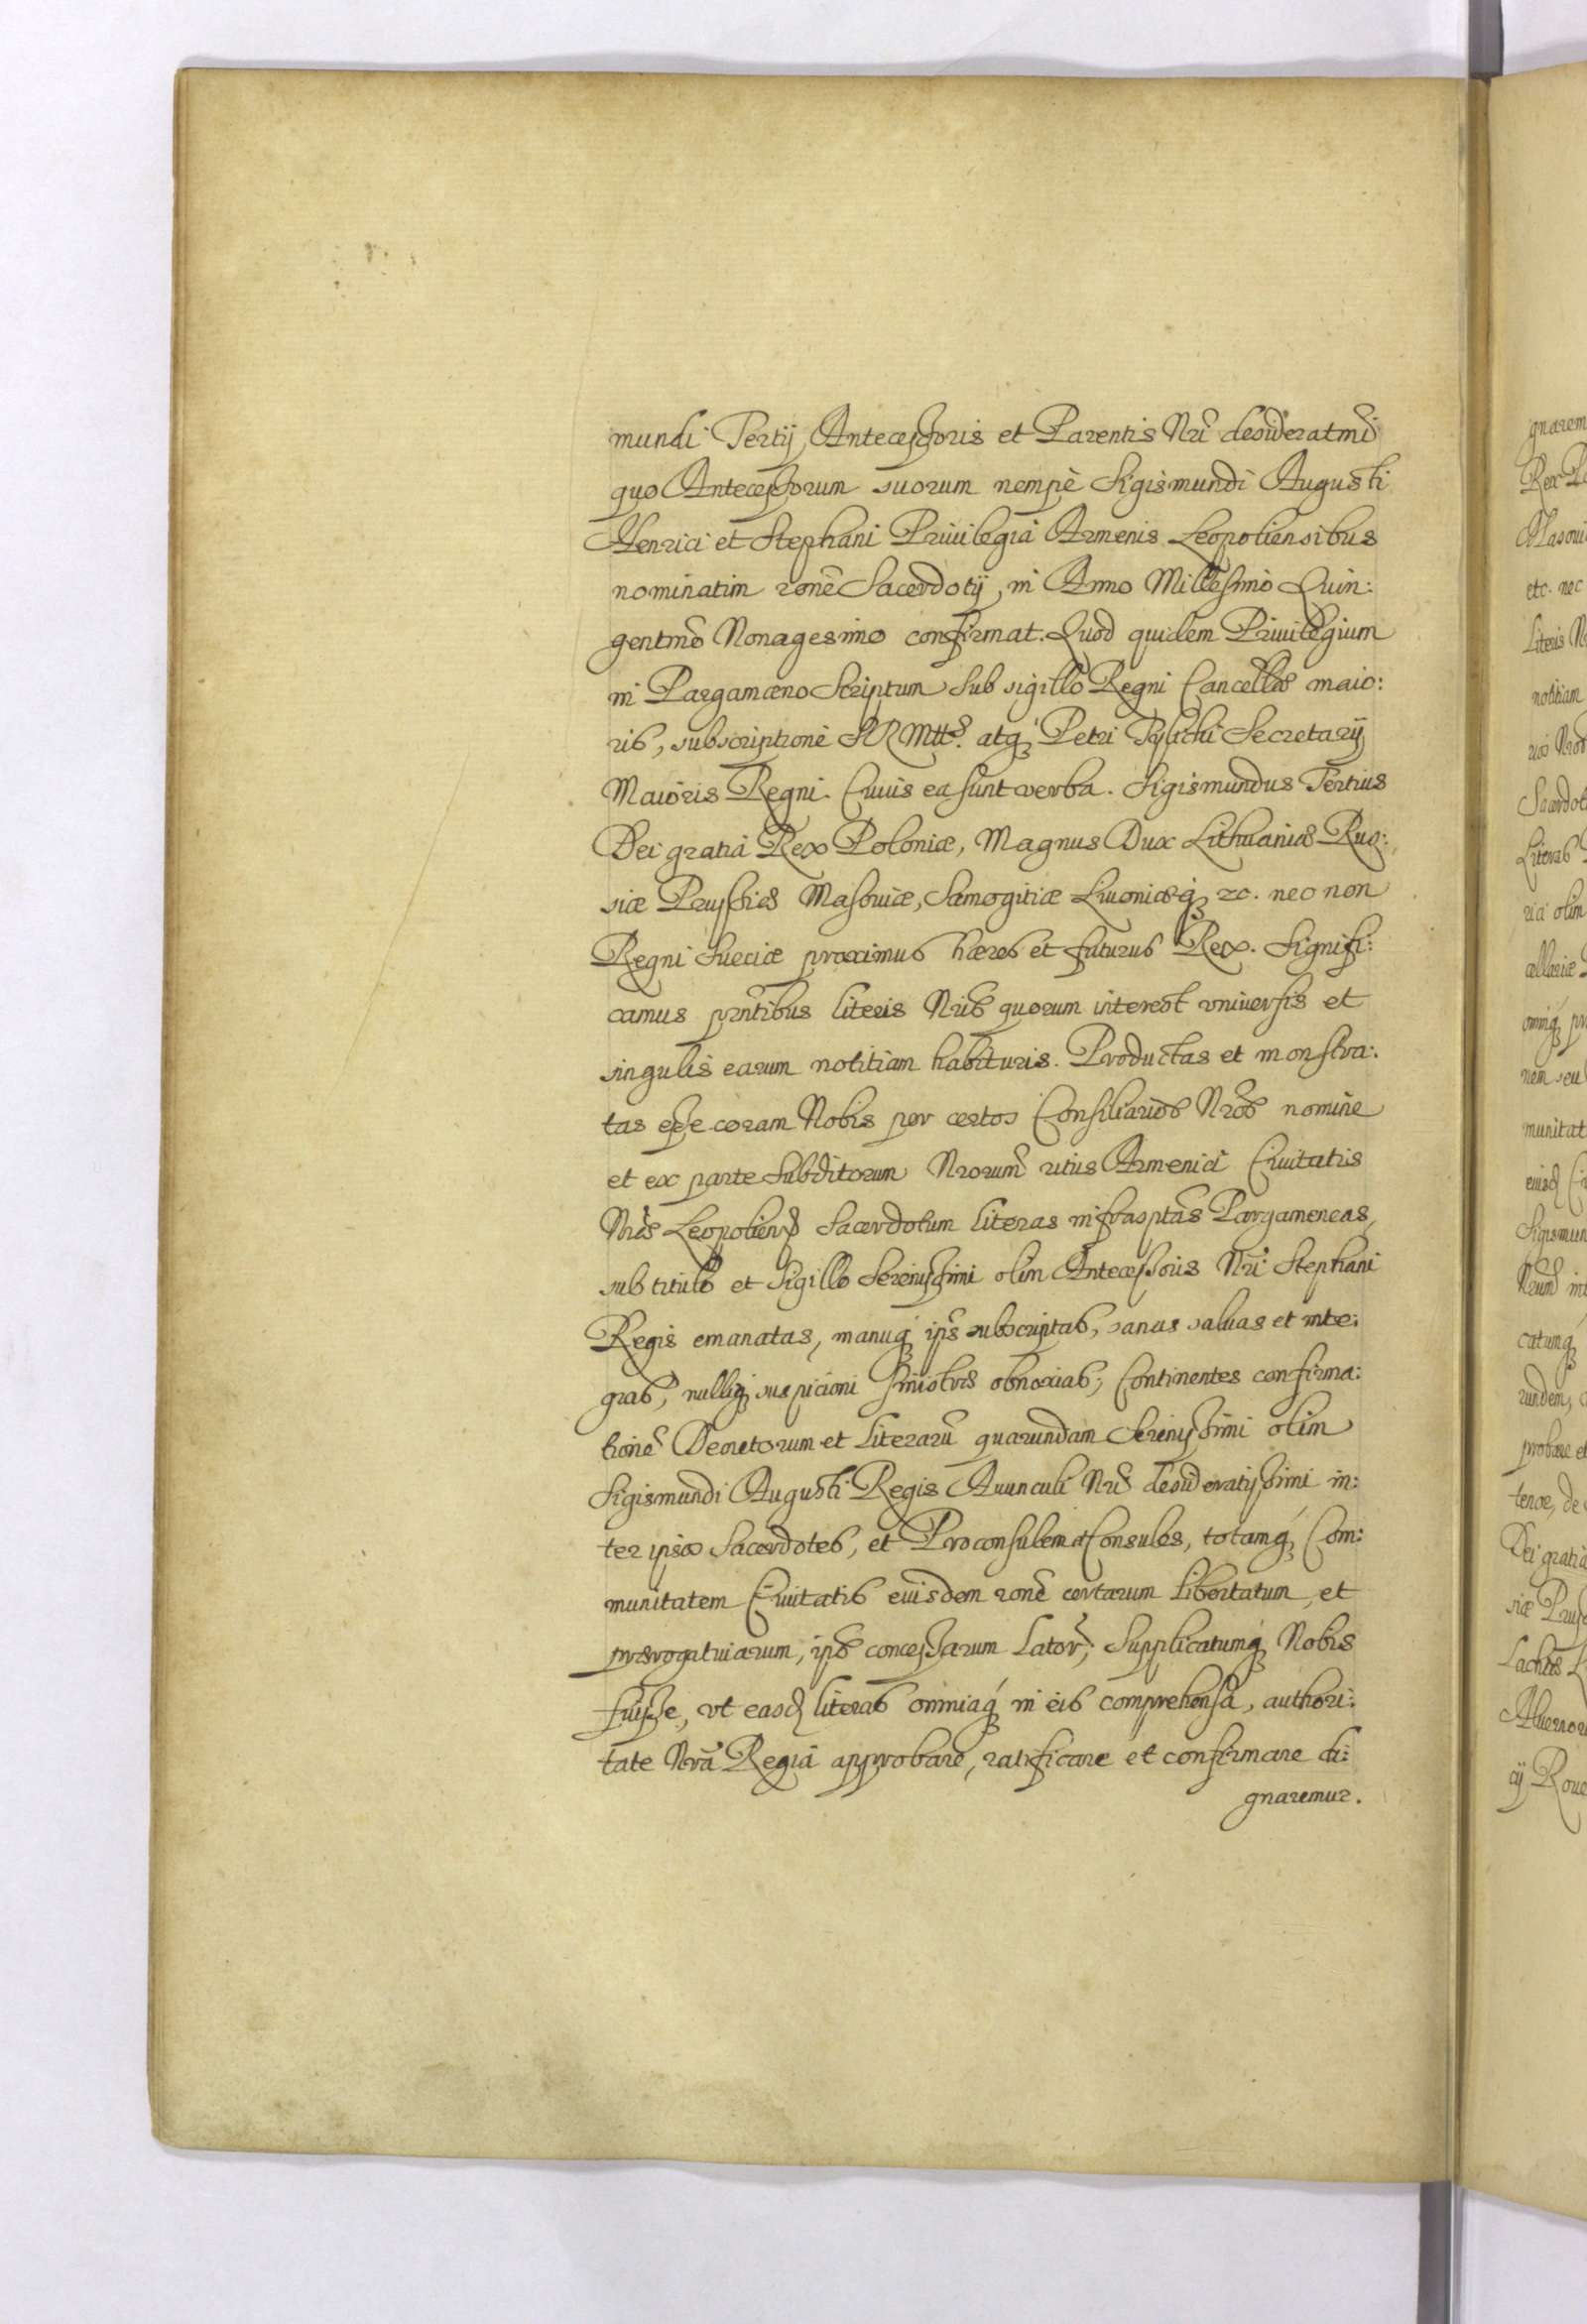 mundi Tertij Antecessoris et Parentis Nri desideratmi
quo Antecessorum suorum nempè Sigismundi Augusti
Henrici et Stephani Priuilegia Armenis Leopoliensibus
nominatim rone Sacerdotij, in Anno Millesimo Quin:
gentmo Nonagesimo confirmat. Quod quidem Priuilegium
in Pargamæno Scriptum sub sigillo Regni Cancellæ maio:
ris, subscriptione SRMttis. atq Petri Tylicki Secretarij
Maioris Regni. Cuius ea sunt verba. Sigismundus Tertius
Dei gratia Rex Poloniæ, Magnus Dux Lithuaniæ Rus:
siæ Prussiæ Masouiæ, Samogitiæ Liuoniæq zc. nec non
Regni Sueciæ proximus hæres et futurus Rex. Signifi:
camus prntibus literis Nris quorum interest vniuersis et
singulis earum notitiam habituris. Productas et monstra:
tas esse coram Nobis per certos Consiliarios Nros nomine
et ex parte Subditorum Nrorum ritus Armenici Ciuitatis
Nræ Leopoliens Sacerdotum literas infrasptas Pargameneas,
sub titulo et Sigillo Serenissimi olim Antecessoris Nri Stephani
Regis emanatas, manuq ips subscriptas, sanas saluas et inte:
gras, nulliq suspicioni sinistræ obnoxias; Continentes confirma:
tione Decretorum et Literaru quarundam Serenissimi olim
Sigismundi Augusti Regis Auunculi Nri desideratissimi in:
ter ipsos Sacerdotes, et Proconsulem et Consules, totamq Com:
munitatem Ciuitatis euisdem rone certarum Libertatum, et
prærogatiuarum, ips concessarum Lator; Supplicatumq Nobis
fuisse, vt easd literas omniaq in eis comprehensa, authori:
tate Nra Regia approbare, ratificare et confirmare di:
gnaremur.